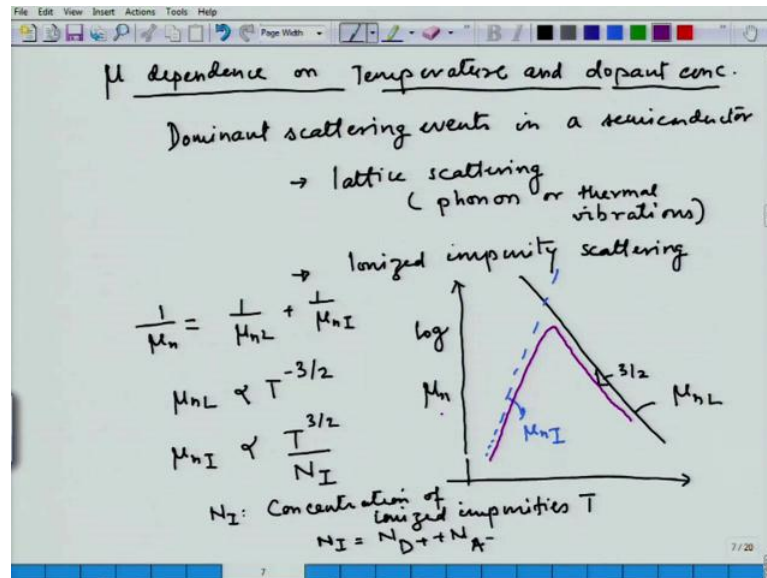 File Edit View Insert Actions Tools Help
Page Width
B I
μ dependence on Temperature and dopant conc.
Dominant scattering events in a semiconductor
→ lattice scattering
( phonon or thermal
vibrations)
→ Ionized impurity scattering
1/μn = 1/μnL + 1/μnI
μnL ∝ T^-3/2
μnI ∝ T^3/2 / NI
log
μn
3/2
μnL
μnI
T
NI: Concentration of
ionized impurities
NI = ND+ + NA-
7
7/20